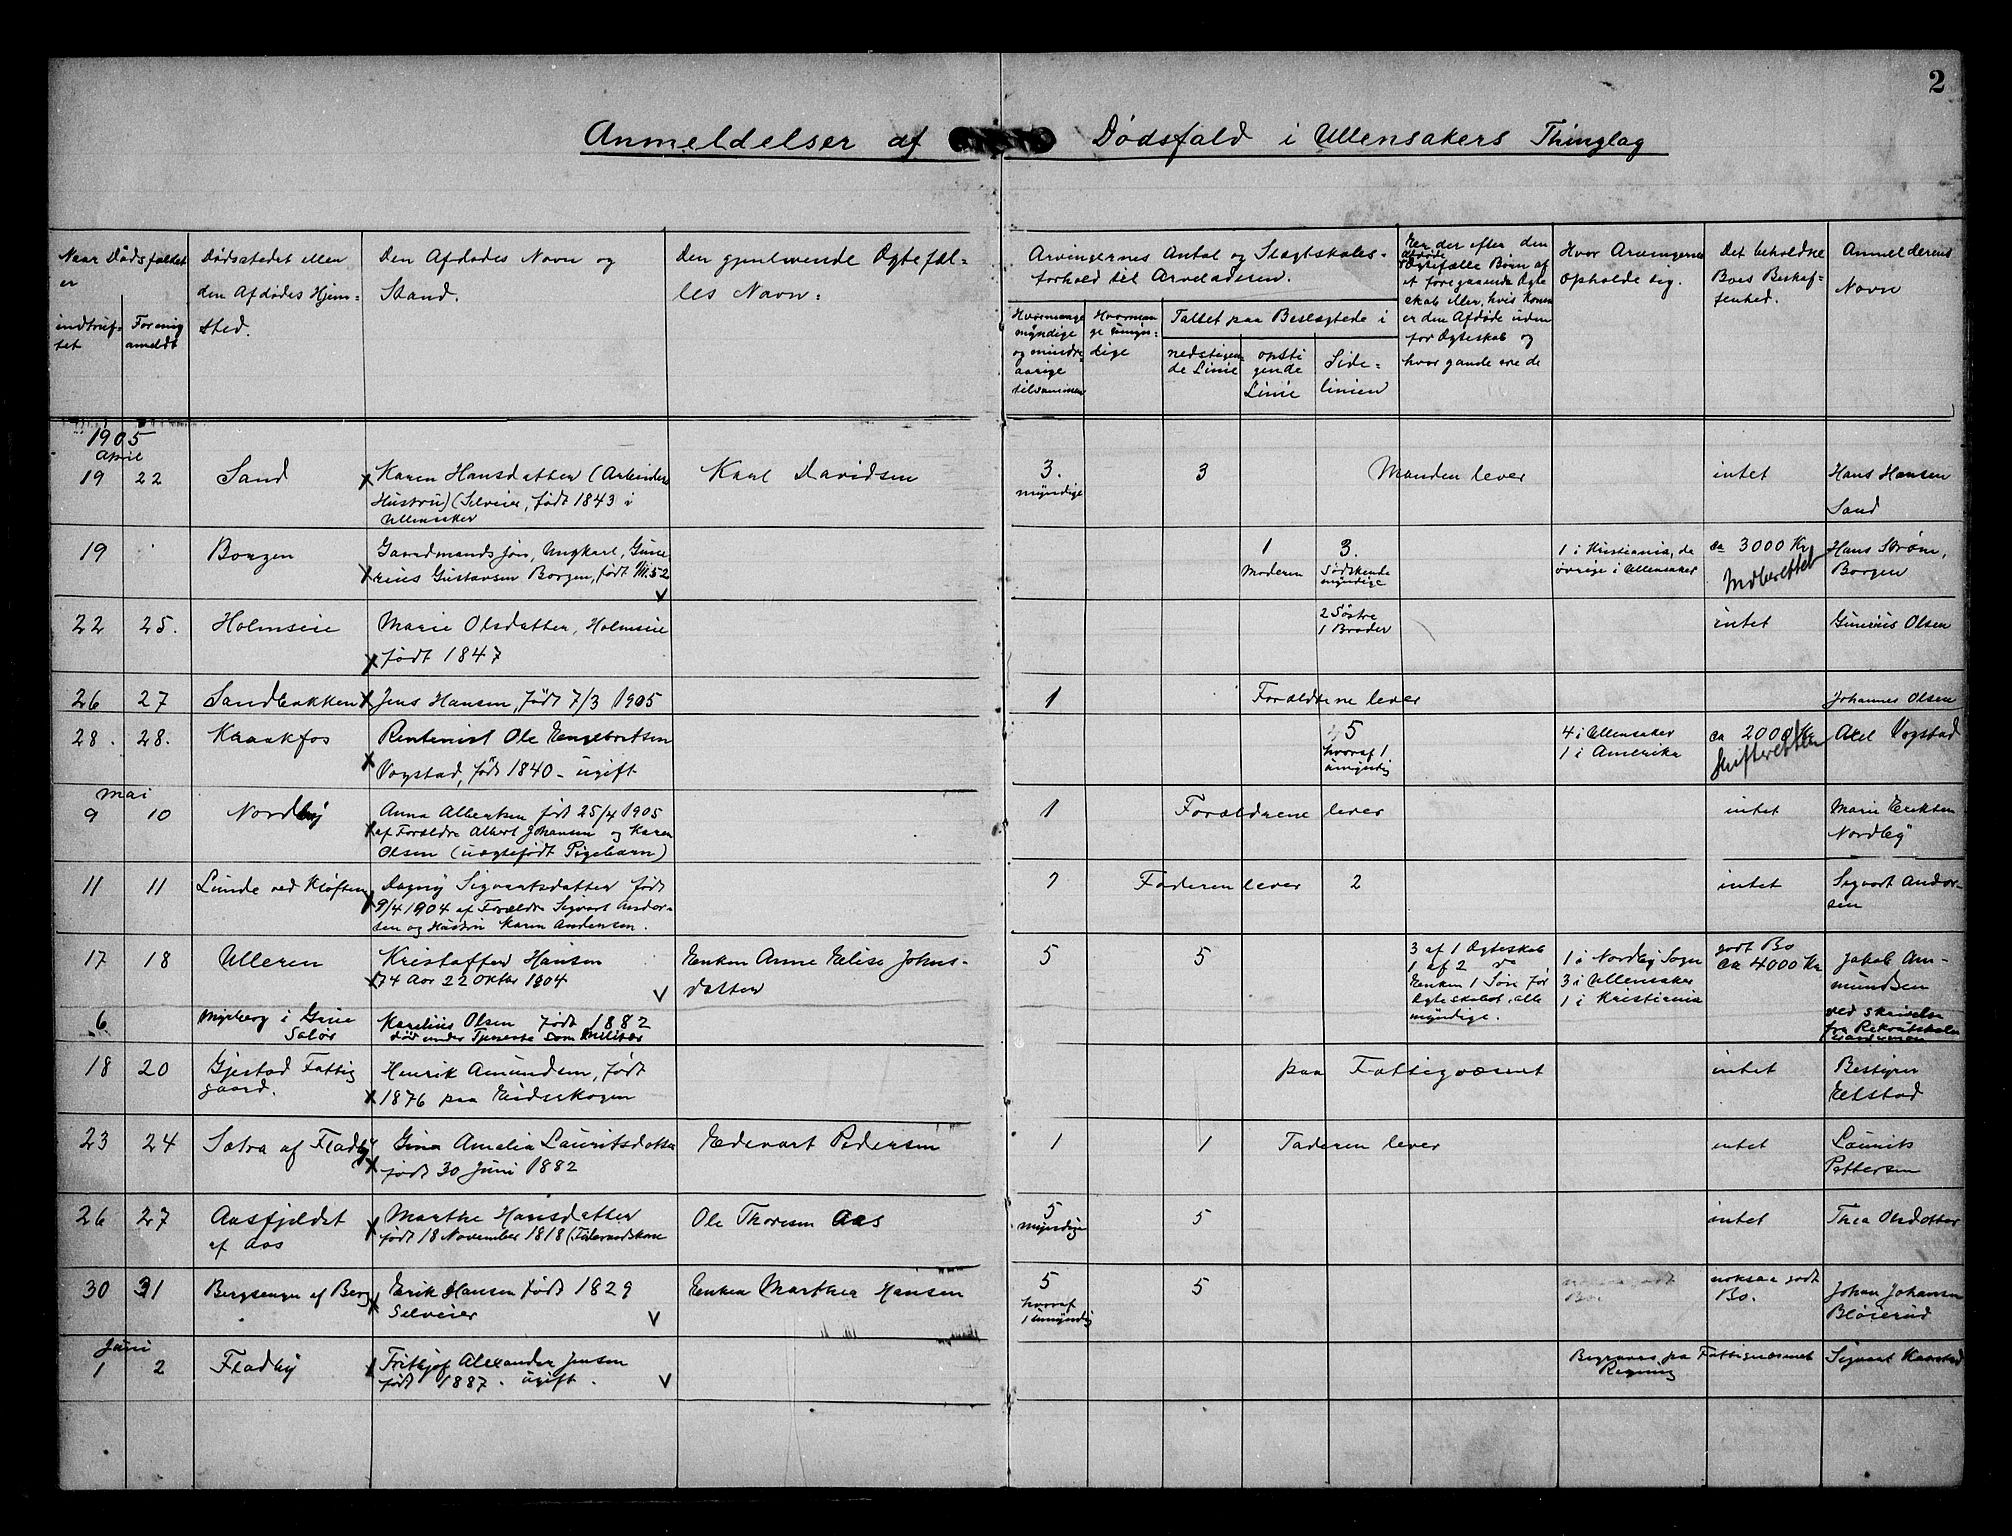 2
Anmeldelser af Dødsfald i Ullensakers Thinglag
Naar Dødsfaldet er
indtruffet
Forening anmeldt
Dødsstedet eller den Afdødes Hjemsted.
Den Afdødes Navn og Stand.
Den gjenlevende Ægtefælles Navn.
Arvingernes Antal og Slægtskabsforhold til Arveladeren.
Hvormange myndige og mindreaarige tilsammen
Hvormange umyndige
Tallet paa Beslægtede i
nedstigende Linie
opstigende Linie
Sidelinien
Er der efter den afdøde Ægtefælle Børn af et foregaaende Ægteskab eller, hvis Konen er den Afdøde uden for Ægteskab og hvor gamle ere de
Hvor Arvingerne opholde sig.
Det beholdne Boes Beskaffenhed.
Anmelderens Navn
1905
April
19 22 Sand Karen Hansdatter (Arbeiders Hustru) (Selveier, født 1843 i Ullensaker Karl Davidsen 3. myndige 3 Manden lever intet Hans Hansen Sand
19 Borgen Gaardmands Søn, Ungkarl, Gunerius Gustavsen Borgen, født 52 1 Moderen 3. Sødskende myndige 1 i Kristiania, de øvrige i Ullensaker ca 3000 Kr Indberettet Hans Strøm, Borgen
22 25. Holmseie Marie Olsdatter, Holmseie født 1847 2 Søstre 1 Broder intet Gunerius Olsen
26 27 Sandbakken Jens Hansen, født 7/3 1905 1 Forældrene lever Johannes Olsen
28. 28. Kraakfos Rentenist Ole Engebretsen Vogstad, født 1840 - ugift 5 hvoraf 1 umyndig 4 i Ullensaker 1 i Amerika ca 2000 Kr Skifteretten Axel Vogstad
Mai
9 10 Nordby Anna Albertsen født 25/4 1905 af Forældre Albert Johansen og Karen Olsen (uægtefødt Pigebarn) 1 Forældrene lever intet Marie Eriksen Nordby
11 11 Lunde ved Kløften Dagny Sigvartsdatter født 9/4 1904 af Forældre Sigvart Andersen og Hustru Karen Andersen. Faderen lever 2 intet Sigvart Andersen
17 18 Ulleren Kristoffer Hansen 74 Aar 22 Oktbr 1904 Enken Anne Elise Johnsdatter 5 5 3 af 1 Ægteskab 1 af 2 do Enken 1 Søn før Ægteskabet, alle myndige. 1 i Nordby Sogn 3 i Ullensaker 1 i Kristiania godt Bo ca 4000 Kr Jakob Amundsen
6 Myrberg i Grue Solør Karelius Olsen født 1882 død under Tjeneste som Militær ved Skrivelse fra Rekrutskolen Gardermoen
18 20 Gjestad Fattiggaard. Henrik Amundsen, født 1876 paa Eidsskogen paa Fattigvæsenet intet Bestyrer Elstad
23 24 Sætra af Fladby Gina Amalia Lauritsdatter født 30 Juni 1882 Edevart Pedersen 1 1 Faderen lever intet Laurits Pettersen
26 27 Aasfjeldet af Aas Marthe Hansdatter født 18 November 1818 (Føderaadskone Ole Thoresen Aas 5 myndige 5 intet Thea Olsdatter
30 31 Bergsengen af Berg Erik Hansen født 1829 Selveier Enken Marthea Hansen 5 hvoraf 1 umyndig 5 noksaa godt Bo. Johan Johansen Bløierud
Juni
1 2 Fladby Fritjof Alexander Jensen født 1887. ugift. Begraves pa Fattigvæsenets Regning Sigvart Kaarstad